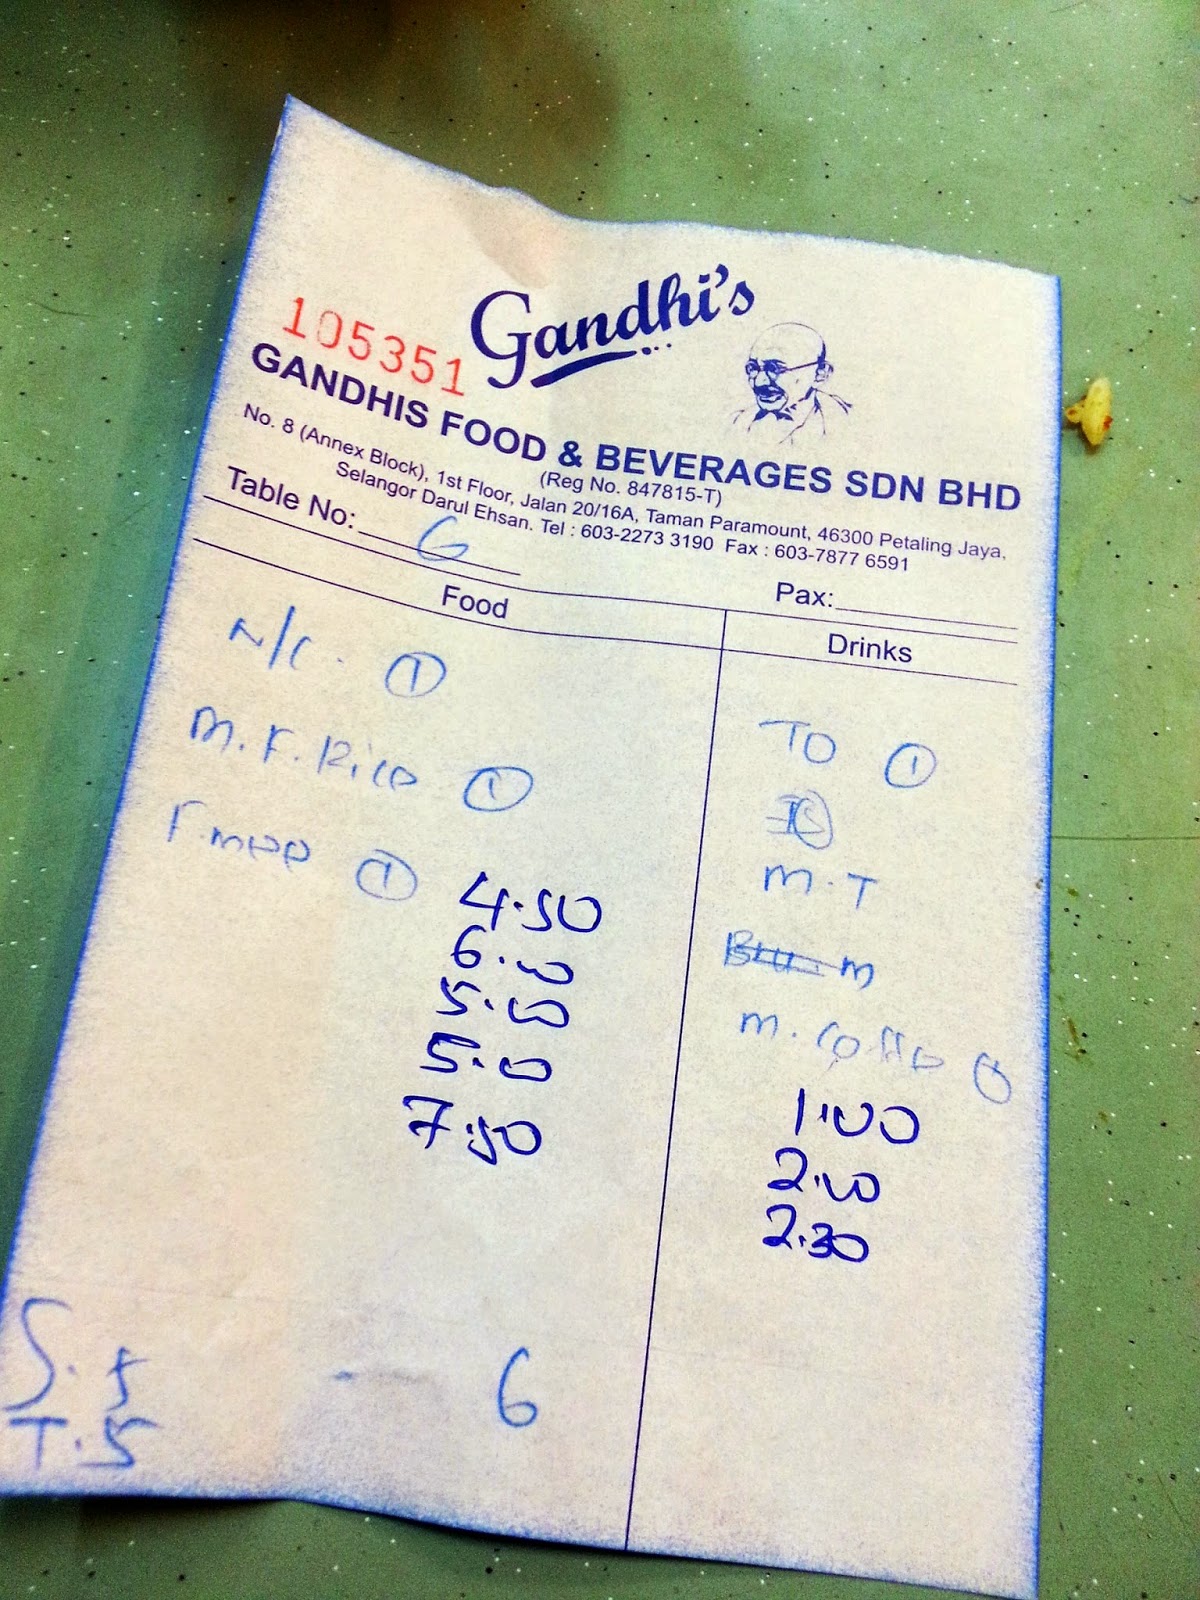 Gandhi's
105351
GANDHIS FOOD & BEVERAGES SDN BHD
(Reg No. 847815-T)
No. 8 (Annex Block), 1st Floor, Jalan 20/16A, Taman Paramount, 46300 Petaling Jaya,
Selangor Darul Ehsan. Tel : 603-2273 3190 Fax : 603-7877 6591
Table No: 6
Pax:
Food
N/C. 1
M. F. Rice 1
1
4.50
6.00
5.00
5.00
7.50
S. 5
T. 5
- 6
Drinks
TO 1
M.T
M
M. Coffee 1
1.00
2.00
2.30